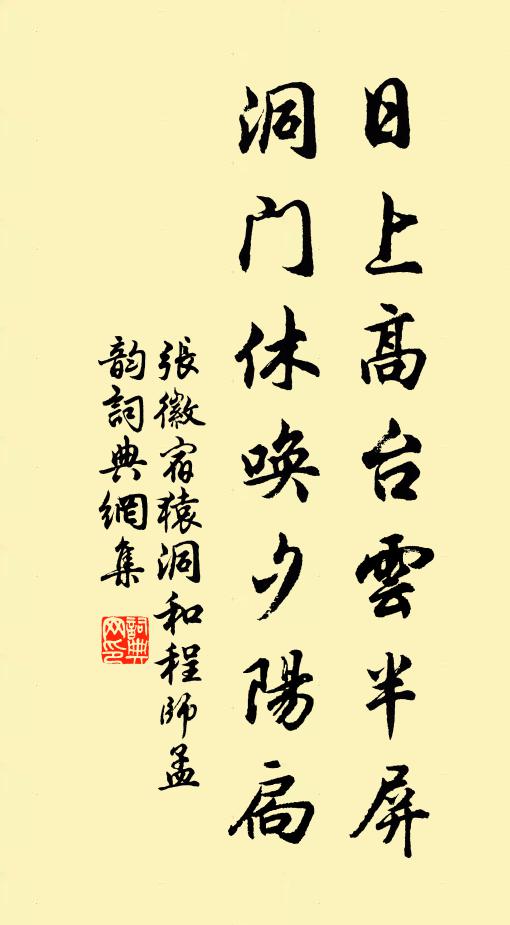 日上高台雲半屏
洞门休唤夕陽扃
張徽宿猿洞和程師孟
韵詞典網集
詞典
网印